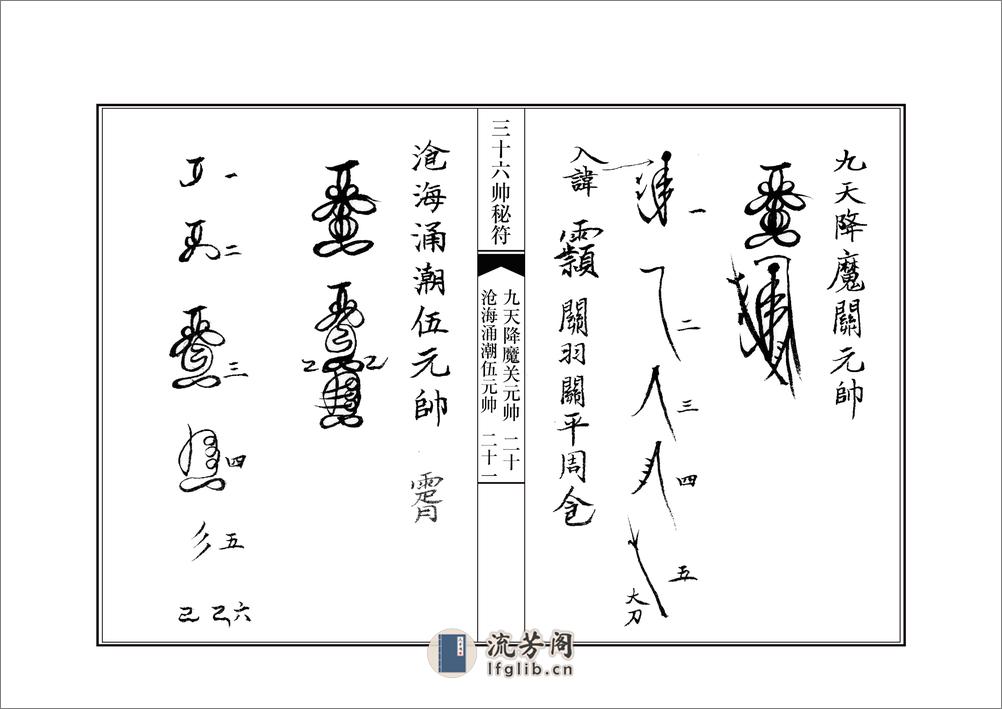 九天降魔關元帥
一
二
三
四
五
大刀
入諱
關羽關平周倉
三十六帅秘符
九天降魔关元帅 二十
沧海涌潮伍元帅 二十一
滄海涌潮伍元帥
一
二
三
四
五
六
流芳阁
lfglib.cn